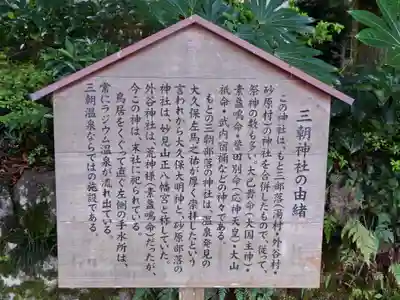 三朝神社の由緒
この神社は、もと三部落(湯村・外谷村・
砂原村)の神社を合併したもので、従って、
祭神の数も多い。大己貴命(大国主神)・
素盞鳴命・誉田別命(応神天皇)・大山
祇命・武内宿禰などの神々である。
もとの三朝部落の神社は、温泉発見の
大久保左馬之祐が厚く崇拝したという
言われから大久保大明神と、砂原部落の
神社は、妙見山正八幡宮と称していた。
外谷神社は、荒神様(素盞鳴命)だったが、
今この神は、末社に祀られている。
鳥居をくぐって直ぐ左側の手水所は、
常にラジウム温泉が流れ出ている。
三朝温泉ならではの施設である。